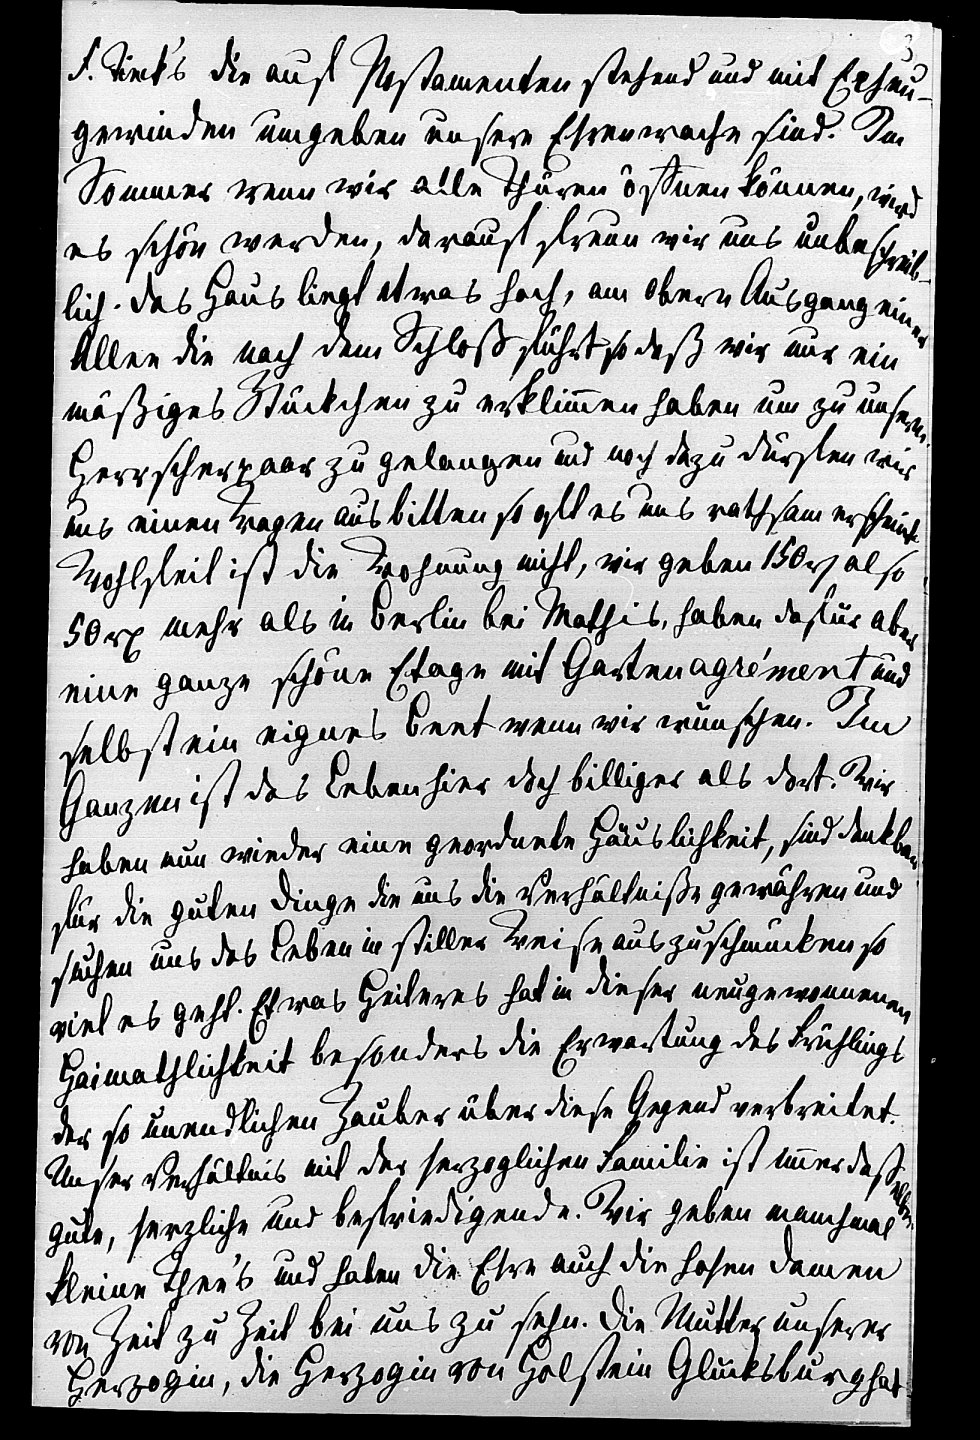 F. Tieck's die auf Postamenten stehend und mit Epheu-
gewinden umgeben unsere Ehrenwache sind. Im
Sommer wenn wir alle Thüren öffnen können, wird
es schön werden, darauf freun wir uns unbeschreib-
lich. Das Haus liegt etwas hoch, am obern Ausgang einer
Allee die nach dem Schloß führt so daß wir nur ein
mäßiges Stückchen zu erklimmen haben um zu unserm
Herrscherpaar zu gelangen und noch dazu dürfen wir
uns einen Wagen ausbitten so oft es uns rathsam erscheint.
Wohlfeil ist die Wohnung nicht, wir geben 150 also
50 mehr als in Berlin bei Mathis, haben dafür aber
eine ganze schöne Etage mit Gartenagrément und
selbst ein eignes Beet wenn wir wünschen. Im
Ganzen ist das Leben hier doch billiger als dort. Wir
haben nun wieder eine geordnete Häuslichkeit, sind dankbar
für die guten Dinge die uns die Verhältniße gewähren und
suchen uns das Leben in stiller Weise auszuschmücken so
viel es geht. Etwas Heiteres hat in dieser neugewonnenen
Heimathlichkeit besonders die Erwartung des Frühlings
der so unendlichen Zauber über diese Gegend verbreitet.
Unser Verhältnis mit der herzoglichen Familie ist immer dasselbe
gute, herzliche und befriedigende. Wir geben manchmal
kleine Thee's und haben die Ehre auch die hohen Damen
von Zeit zu Zeit bei uns zu sehn. Die Mutter unserer
Herzogin, die Herzogin von Holstein Glücksburg hat